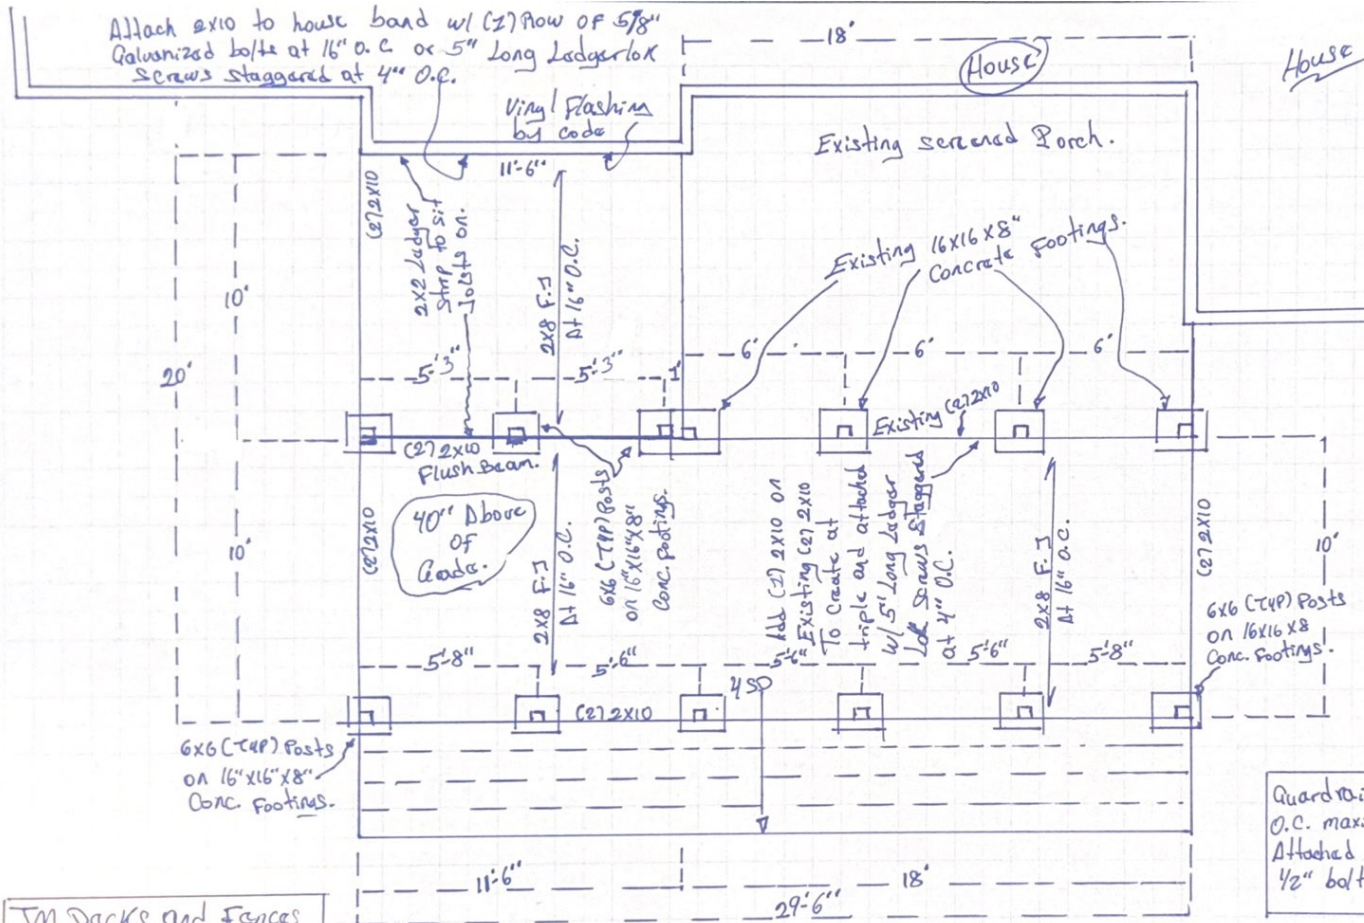 Attach 2x10 to house band w/ (1) Row of 5/8"
Galvanized bolts at 16" O.C. or 5" Long Ledgerlok
Screws staggered at 4" O.C.
18'
House
House
Vinyl Flashing
by code
Existing screened Porch.
11'-6"
(2) 2x10
2x2 Ledger
Strip to sit
Joists on
2x8 F.J
At 16" O.C.
Existing 16x16x8"
Concrete Footings.
10'
20'
6'
6'
6'
5'-3"
5'-3"
1'
(2) 2x10
Flush Beam.
Existing (2) 2x10
40" Above
of
Grade.
(2) 2x10
10'
2x8 F.J
At 16" O.C.
6x6 (TYP) Posts
on 16"x16"x8"
Conc. Footings.
Add (1) 2x10 on
Existing (2) 2x10
To Create at
triple and attached
w/ 5" Long Ledger
Lok Screws Staggered
at 4" O.C.
2x8 F.J
At 16" O.C.
(2) 2x10
10'
6x6 (TYP) Posts
on 16x16x8
Conc. Footings.
5'-8"
5'-6"
5'-6"
5'-6"
5'-8"
4SD
(2) 2x10
6x6 (TYP) Posts
on 16"x16"x8"
Conc. Footings.
Guardrai
O.C. max
Attached
1/2" bolt
11'-6"
18'
29'-6"
TM Decks and Fences